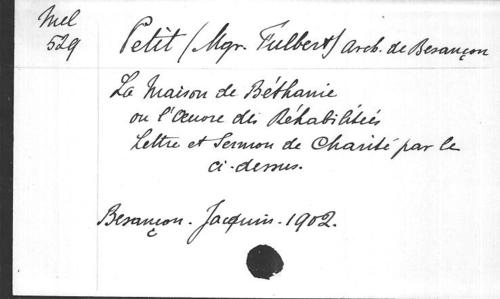 Mel
529
Petit (Mgr. Fulbert) arch. de Besançon
La Maison de Béthanie
ou l'Œuvre des Réhabilitées
Lettre et Sermon de Charité par le
ci-dessus.
Besançon. Jacquin. 1902.